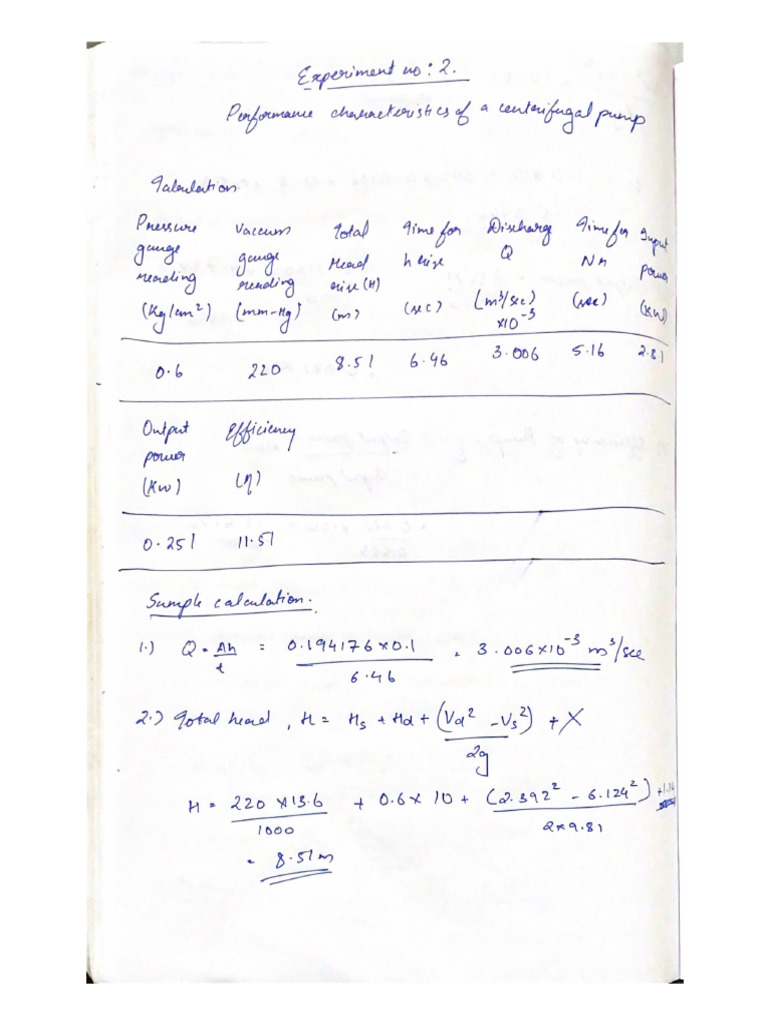 Experiment no: 2.
Performance characteristics of a centrifugal pump
Tabulation
Pressure gauge reading (Kg/cm²) Vaccum gauge reading (mm-Hg) Total Head rise (H) (m) Time for h rise (sec) Discharg Q (m³/sec) ×10⁻³ Time for Nr (sec) Input power (KW)
0.6 220 8.51 6.46 3.006 5.16 2.81
Output power (KW) Efficiency (η)
0.251 11.51
Sample calculation.
1.) Q = Ah/t = 0.194176×0.1/6.46 = 3.006×10⁻³ m³/sec
2.) Total head, H = Hs + Hd + (Vd² - Vs²)/2g + X
H = 220×13.6/1000 + 0.6×10 + (2.392² - 6.124²)/2×9.81
= 8.51m